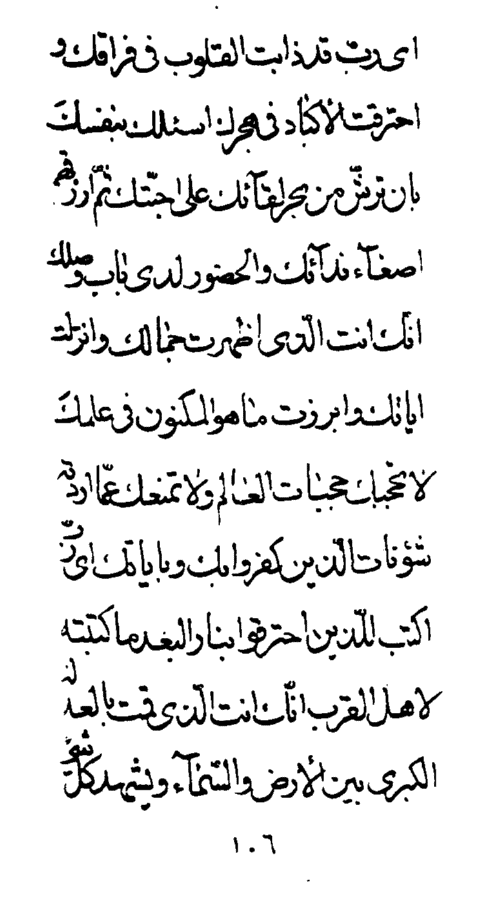 ای ربّ قد ذابت القلوب فی فراقک و
احترقت الاکباد فی هجرک اسئلک بنفسک
بان ترشّ من بحر لقآئک علی احبّتک ثمّ ارزقهم
اصغآء ندآئک والحضور لدی باب وصلک
انّک انت الّذی اظهرت جمالک وانزلت
ایاتک وابرزت ما هو المکنون فی علمک
لا تحجبک حجبات العالم ولا تمنعک عمّا اردته
شؤنات الّذین کفروا بک وبایاتک ای ربّ
اکتب للّذین احترقوا بنار البعد ما کتبته
لاهل القرب انّک انت الّذی قمت بالعدلة
الکبری بین الارض والسّمآء ویشهد کلّ شیئ
۱۰۶